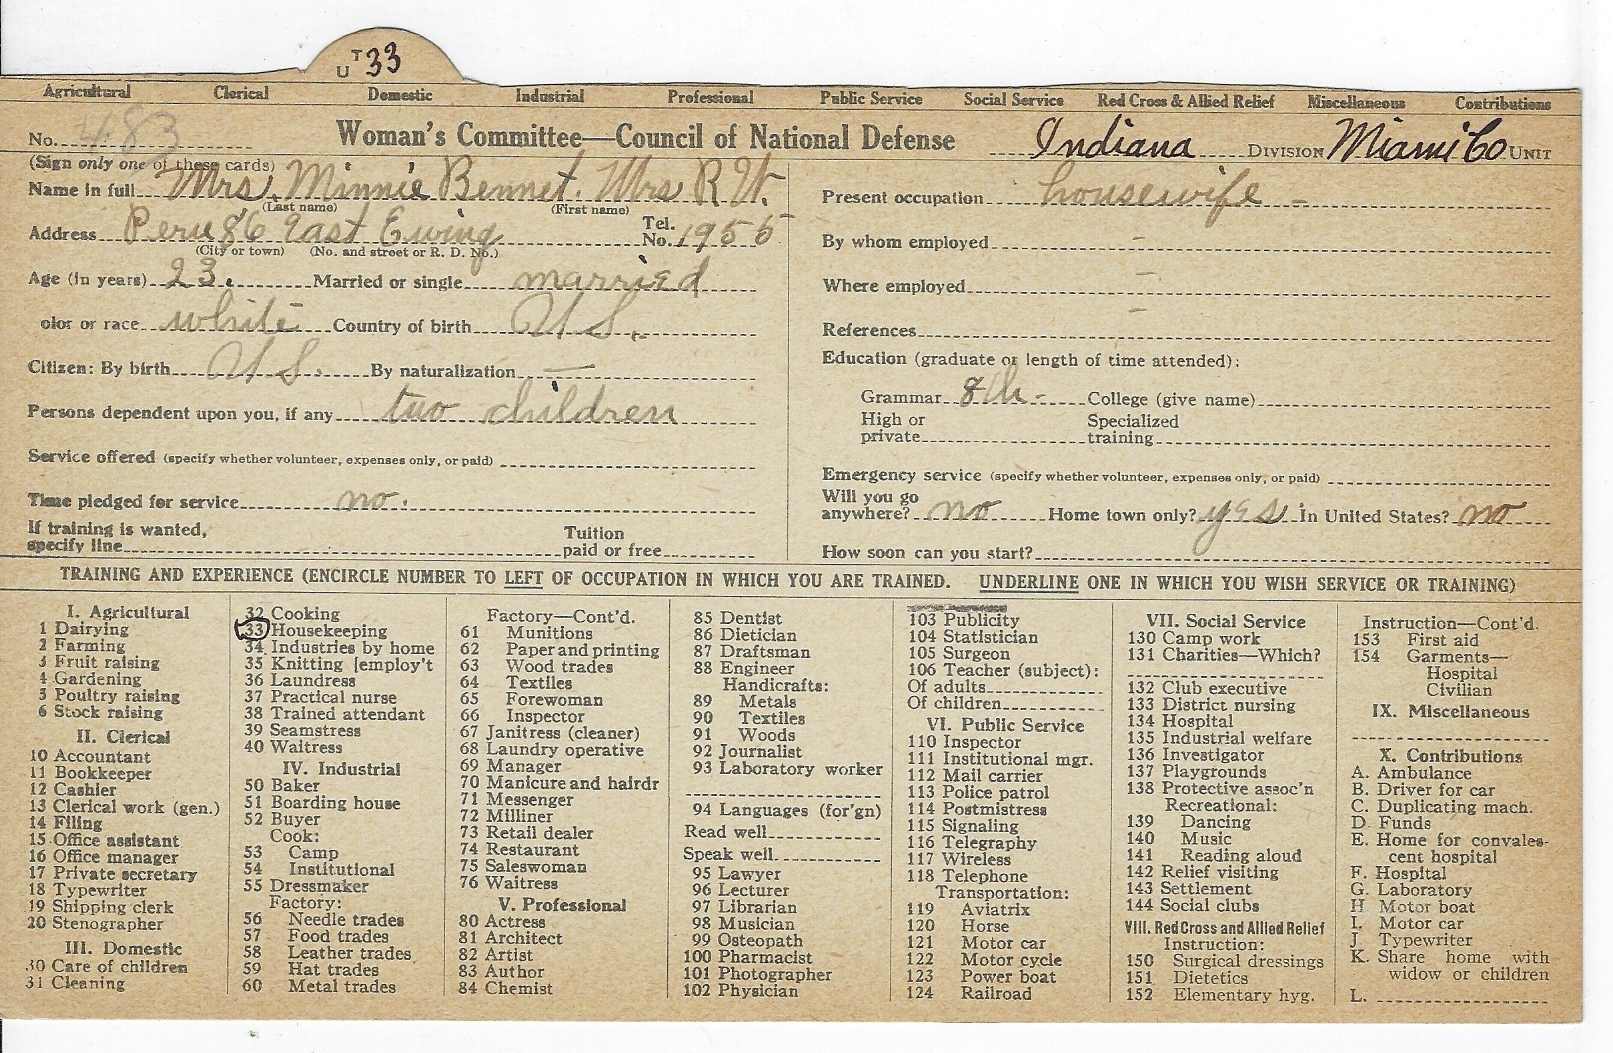 UT 33
Agricultural Clerical Domestic Industrial Professional Public Service Social Service Red Cross & Allied Relief Miscellaneous Contributions
No. 483 Woman's Committee—Council of National Defense Indiana DIVISION Miami Co UNIT
(Sign only one of these cards)
Name in full Mrs. Minnie Bennet. Mrs R W.
(Last name) (First name)
Address Peru 86 East Ewing Tel. No. 1955
(City or town) (No. and street or R. D. No.)
Age (in years) 23. Married or single married
olor or race white Country of birth U S.
Citizen: By birth U S. By naturalization —
Persons dependent upon you, if any two children
Service offered (specify whether volunteer, expenses only, or paid)
Time pledged for service no.
If training is wanted, specify line Tuition paid or free
Present occupation housewife -
By whom employed -
Where employed -
References -
Education (graduate or length of time attended):
Grammar 8th - College (give name)
High or private Specialized training
Emergency service (specify whether volunteer, expenses only, or paid)
Will you go anywhere? no Home town only? yes In United States? no
How soon can you start?
TRAINING AND EXPERIENCE (ENCIRCLE NUMBER TO LEFT OF OCCUPATION IN WHICH YOU ARE TRAINED. UNDERLINE ONE IN WHICH YOU WISH SERVICE OR TRAINING)
I. Agricultural
1 Dairying
2 Farming
3 Fruit raising
4 Gardening
5 Poultry raising
6 Stock raising
II. Clerical
10 Accountant
11 Bookkeeper
12 Cashier
13 Clerical work (gen.)
14 Filing
15 Office assistant
16 Office manager
17 Private secretary
18 Typewriter
19 Shipping clerk
20 Stenographer
III. Domestic
30 Care of children
31 Cleaning
32 Cooking
33 Housekeeping
34 Industries by home
35 Knitting [employ't
36 Laundress
37 Practical nurse
38 Trained attendant
39 Seamstress
40 Waitress
IV. Industrial
50 Baker
51 Boarding house
52 Buyer
Cook:
53 Camp
54 Institutional
55 Dressmaker
Factory:
56 Needle trades
57 Food trades
58 Leather trades
59 Hat trades
60 Metal trades
Factory—Cont'd.
61 Munitions
62 Paper and printing
63 Wood trades
64 Textiles
65 Forewoman
66 Inspector
67 Janitress (cleaner)
68 Laundry operative
69 Manager
70 Manicure and hairdr
71 Messenger
72 Milliner
73 Retail dealer
74 Restaurant
75 Saleswoman
76 Waitress
V. Professional
80 Actress
81 Architect
82 Artist
83 Author
84 Chemist
85 Dentist
86 Dietician
87 Draftsman
88 Engineer
Handicrafts:
89 Metals
90 Textiles
91 Woods
92 Journalist
93 Laboratory worker
94 Languages (for'gn)
Read well
Speak well
95 Lawyer
96 Lecturer
97 Librarian
98 Musician
99 Osteopath
100 Pharmacist
101 Photographer
102 Physician
103 Publicity
104 Statistician
105 Surgeon
106 Teacher (subject):
Of adults
Of children
VI. Public Service
110 Inspector
111 Institutional mgr.
112 Mail carrier
113 Police patrol
114 Postmistress
115 Signaling
116 Telegraphy
117 Wireless
118 Telephone
Transportation:
119 Aviatrix
120 Horse
121 Motor car
122 Motor cycle
123 Power boat
124 Railroad
VII. Social Service
130 Camp work
131 Charities—Which?
132 Club executive
133 District nursing
134 Hospital
135 Industrial welfare
136 Investigator
137 Playgrounds
138 Protective assoc'n
Recreational:
139 Dancing
140 Music
141 Reading aloud
142 Relief visiting
143 Settlement
144 Social clubs
VIII. Red Cross and Allied Relief
Instruction:
150 Surgical dressings
151 Dietetics
152 Elementary hyg.
Instruction—Cont'd.
153 First aid
154 Garments—
Hospital
Civilian
IX. Miscellaneous
X. Contributions
A. Ambulance
B. Driver for car
C. Duplicating mach.
D. Funds
E. Home for convales-
cent hospital
F. Hospital
G. Laboratory
H Motor boat
I. Motor car
J Typewriter
K. Share home with
widow or children
L.